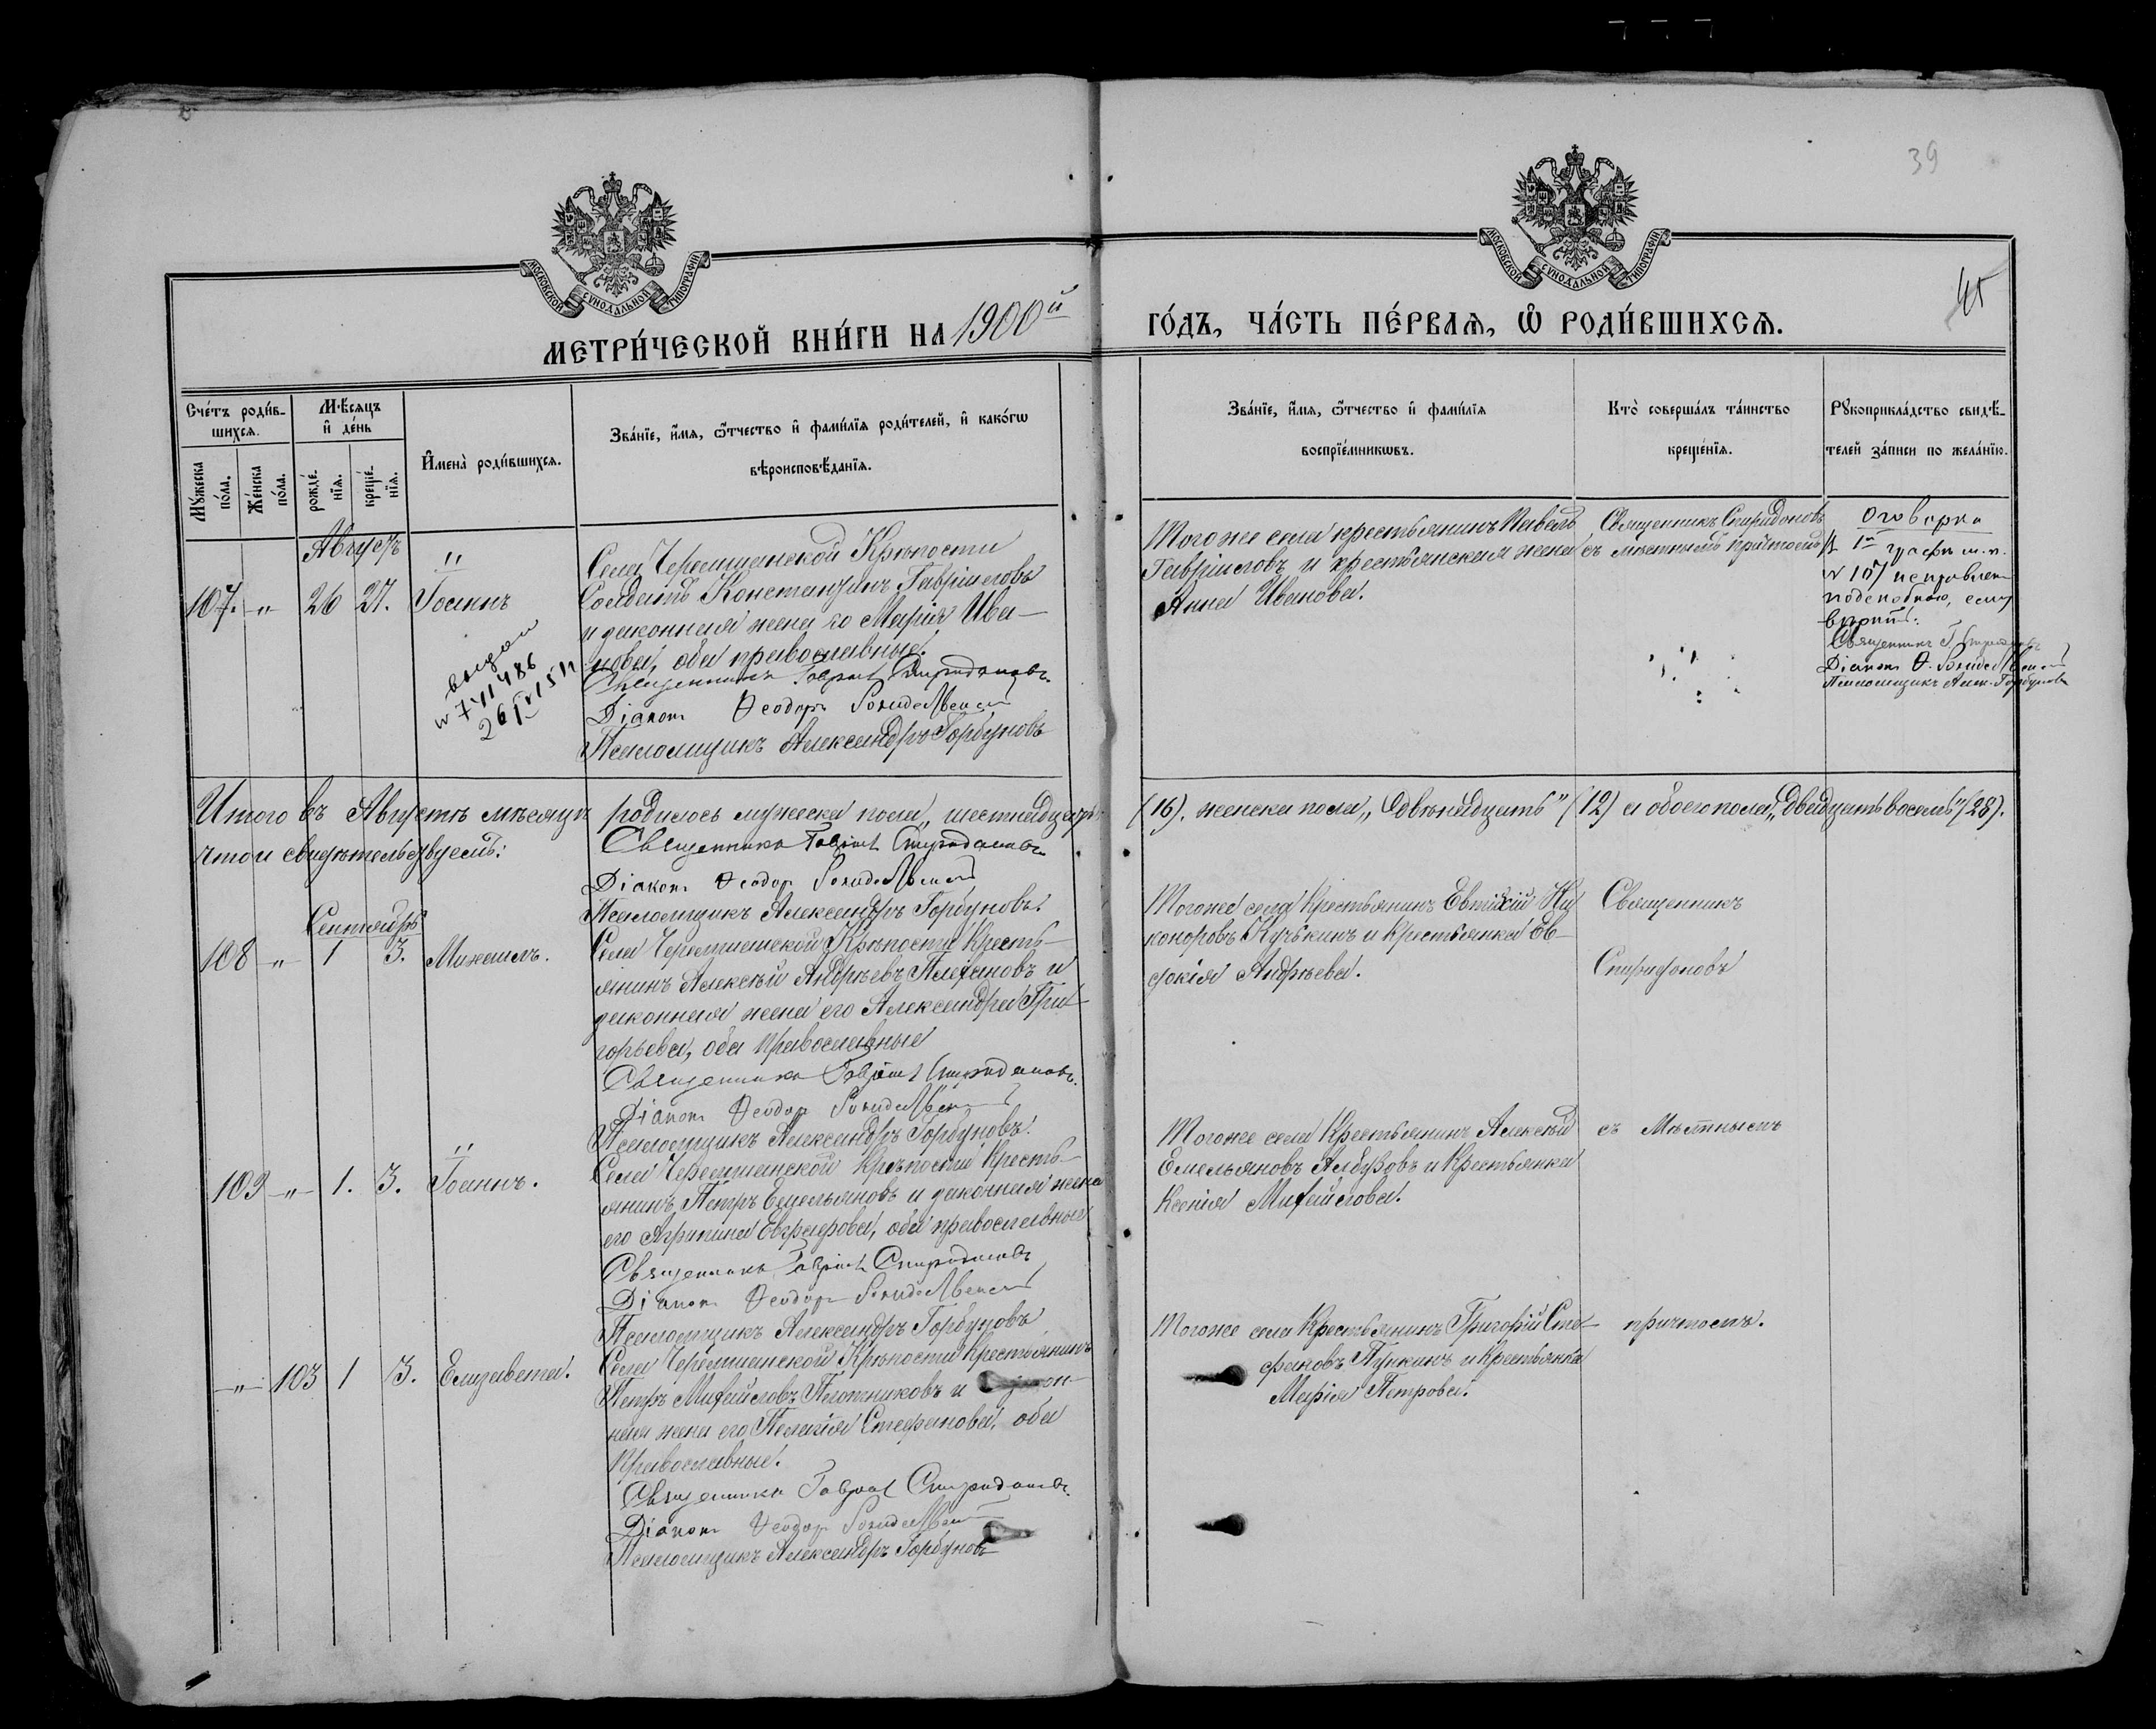 39
45
МОСКОВСКОЙ СѴНОДАЛЬНОЙ ТИПОГРАФІИ
МОСКОВСКОЙ СѴНОДАЛЬНОЙ ТИПОГРАФІИ
МЕТРИ́ЧЕСКОЙ КНИ́ГИ НА 1900й
ГО́ДЪ, ЧА́СТЬ ПЕ́РВАѦ, Ѽ РОДИ́ВШИХСѦ.
Сче́тъ роди́в-
шихсѧ.
Мѣ́сѧцъ
и҆ де́нь
Мꙋ́жеска
по́ла.
Же́нска
по́ла.
рожде́-
нїѧ.
креще́-
нїѧ.
И҆мена̀ роди́вшихсѧ.
Зва́нїе, и҆́мѧ, ѻ҆́тчество и҆ фами́лїѧ роди́телей, и҆ како́гѡ
вѣроисповѣ́данїѧ.
Зва́нїе, и҆́мѧ, ѻ҆́тчество и҆ фами́лїѧ
воспрїе́мникѡвъ.
Кто̀ соверша́лъ та́инство
креще́нїѧ.
Рꙋкоприкла́дство свидѣ́-
телей за́писи по жела́нїю.
Августъ
107. " 26 27. Іоаннъ
Села Черемшанской Крѣпости
Солдатъ Константинъ Гавріиловъ
и законная жена его Марія Ива-
нова, оба православные.
Священникъ Гавріилъ Спиридоновъ
Діаконъ Ѳеодоръ
Псаломщикъ Александръ Горбуновъ
выдан
Тогоже села крестьянинъ Павелъ
Гавріиловъ и крестьянская жена
Анна Иванова.
Священникъ Спиридоновъ
съ мѣстнымъ причтомъ
Оговорка
В 1й графѣ м. п.
№ 107 исправлен
подскобкою, ему
вѣрить.
Священникъ Г. Спиридоновъ
Діаконъ Ѳ.
Псаломщикъ Алек. Горбуновъ
Итого въ Августѣ мѣсяцѣ родилось мужеска пола „шестнадцать"
(16). женска пола „двѣнадцать" (12) а обоего пола „двадцать восемь" (28).
что и свидѣтельствуемъ:
Священникъ Гавріилъ Спиридоновъ
Діаконъ Ѳеодоръ
Псаломщикъ Александръ Горбуновъ.
Сентябрь
108 " 1 3. Михаилъ.
Села Черемшанской Крѣпости Кресть-
янинъ Алексѣй Андреевъ Плехановъ и
законная жена его Александра Гри-
горьева, оба православные
Священникъ Гавріилъ Спиридоновъ.
Діаконъ Ѳеодоръ
Псаломщикъ Александръ Горбуновъ.
Тогоже села Крестьянинъ Евтихій Ни-
каноровъ Кучькинъ и Крестьянка Ев-
докія Андреева.
Священникъ
Спиридоновъ
109 " 1. 3. Іоаннъ.
Села Черемшанской Крѣпости Кресть-
янинъ Петръ Емельяновъ и законная жена
его Агрипина, оба православные
Священникъ Гавріилъ Спиридоновъ
Діаконъ Ѳеодоръ
Псаломщикъ Александръ Горбуновъ
Тогоже села Крестьянинъ Алексѣй
Емельяновъ Албузовъ и Крестьянка
Ксенія Михайлова.
съ Мѣстнымъ
" 103 1 3. Елизавета.
Села Черемшанской Крѣпости Крестьянинъ
Петръ Михайловъ Плотниковъ и закон-
ная жена его Пелагія Стефанова, оба
Православные.
Священникъ Гавріилъ Спиридоновъ.
Діаконъ Ѳеодоръ
Псаломщикъ Александръ Горбуновъ
Тогоже села Крестьянинъ Григорій Сте-
фановъ Пункинъ и Крестьянка
Марія Петрова.
причтомъ.